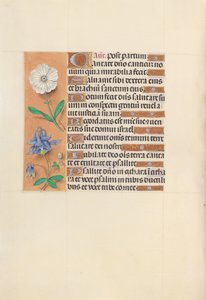 Añ. Post partum
Cantate dño canticū no
uum quia mirabilia fecit
Saluauit sibi dextera eius
et brachiū sanctum eius
Notum fecit dñs salutare su
um in conspectu gentiū reuela
uit iusticiā suam
Recordatus est mīe
israel
Viderunt omēs termini terre
salutare dei nostri
Jubilate deo oīs terra canta
te et exultate et psallite
Psallite dño in cithara
et voce psalmi in tubis ductili
bus et voce tube cornee